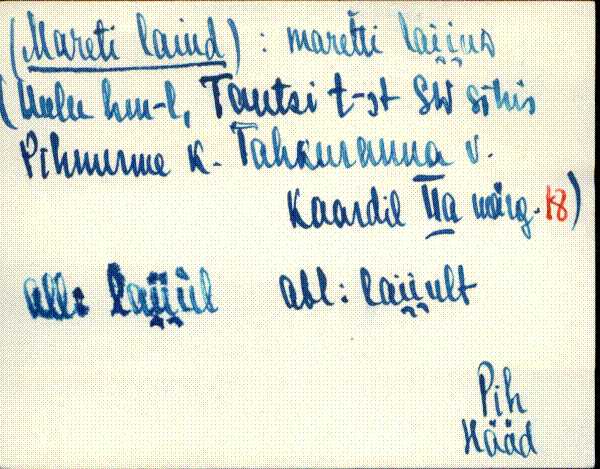 (Mareti laiud) : maretti laii̯us
(Uulu hm-l, Tontsi t-st SW sihis
Pihmurme k. Tahkuranna v.
Kaardil IIa märg. 18)
all: laii̯ul abl: laii̯ult
Pih
Hääd